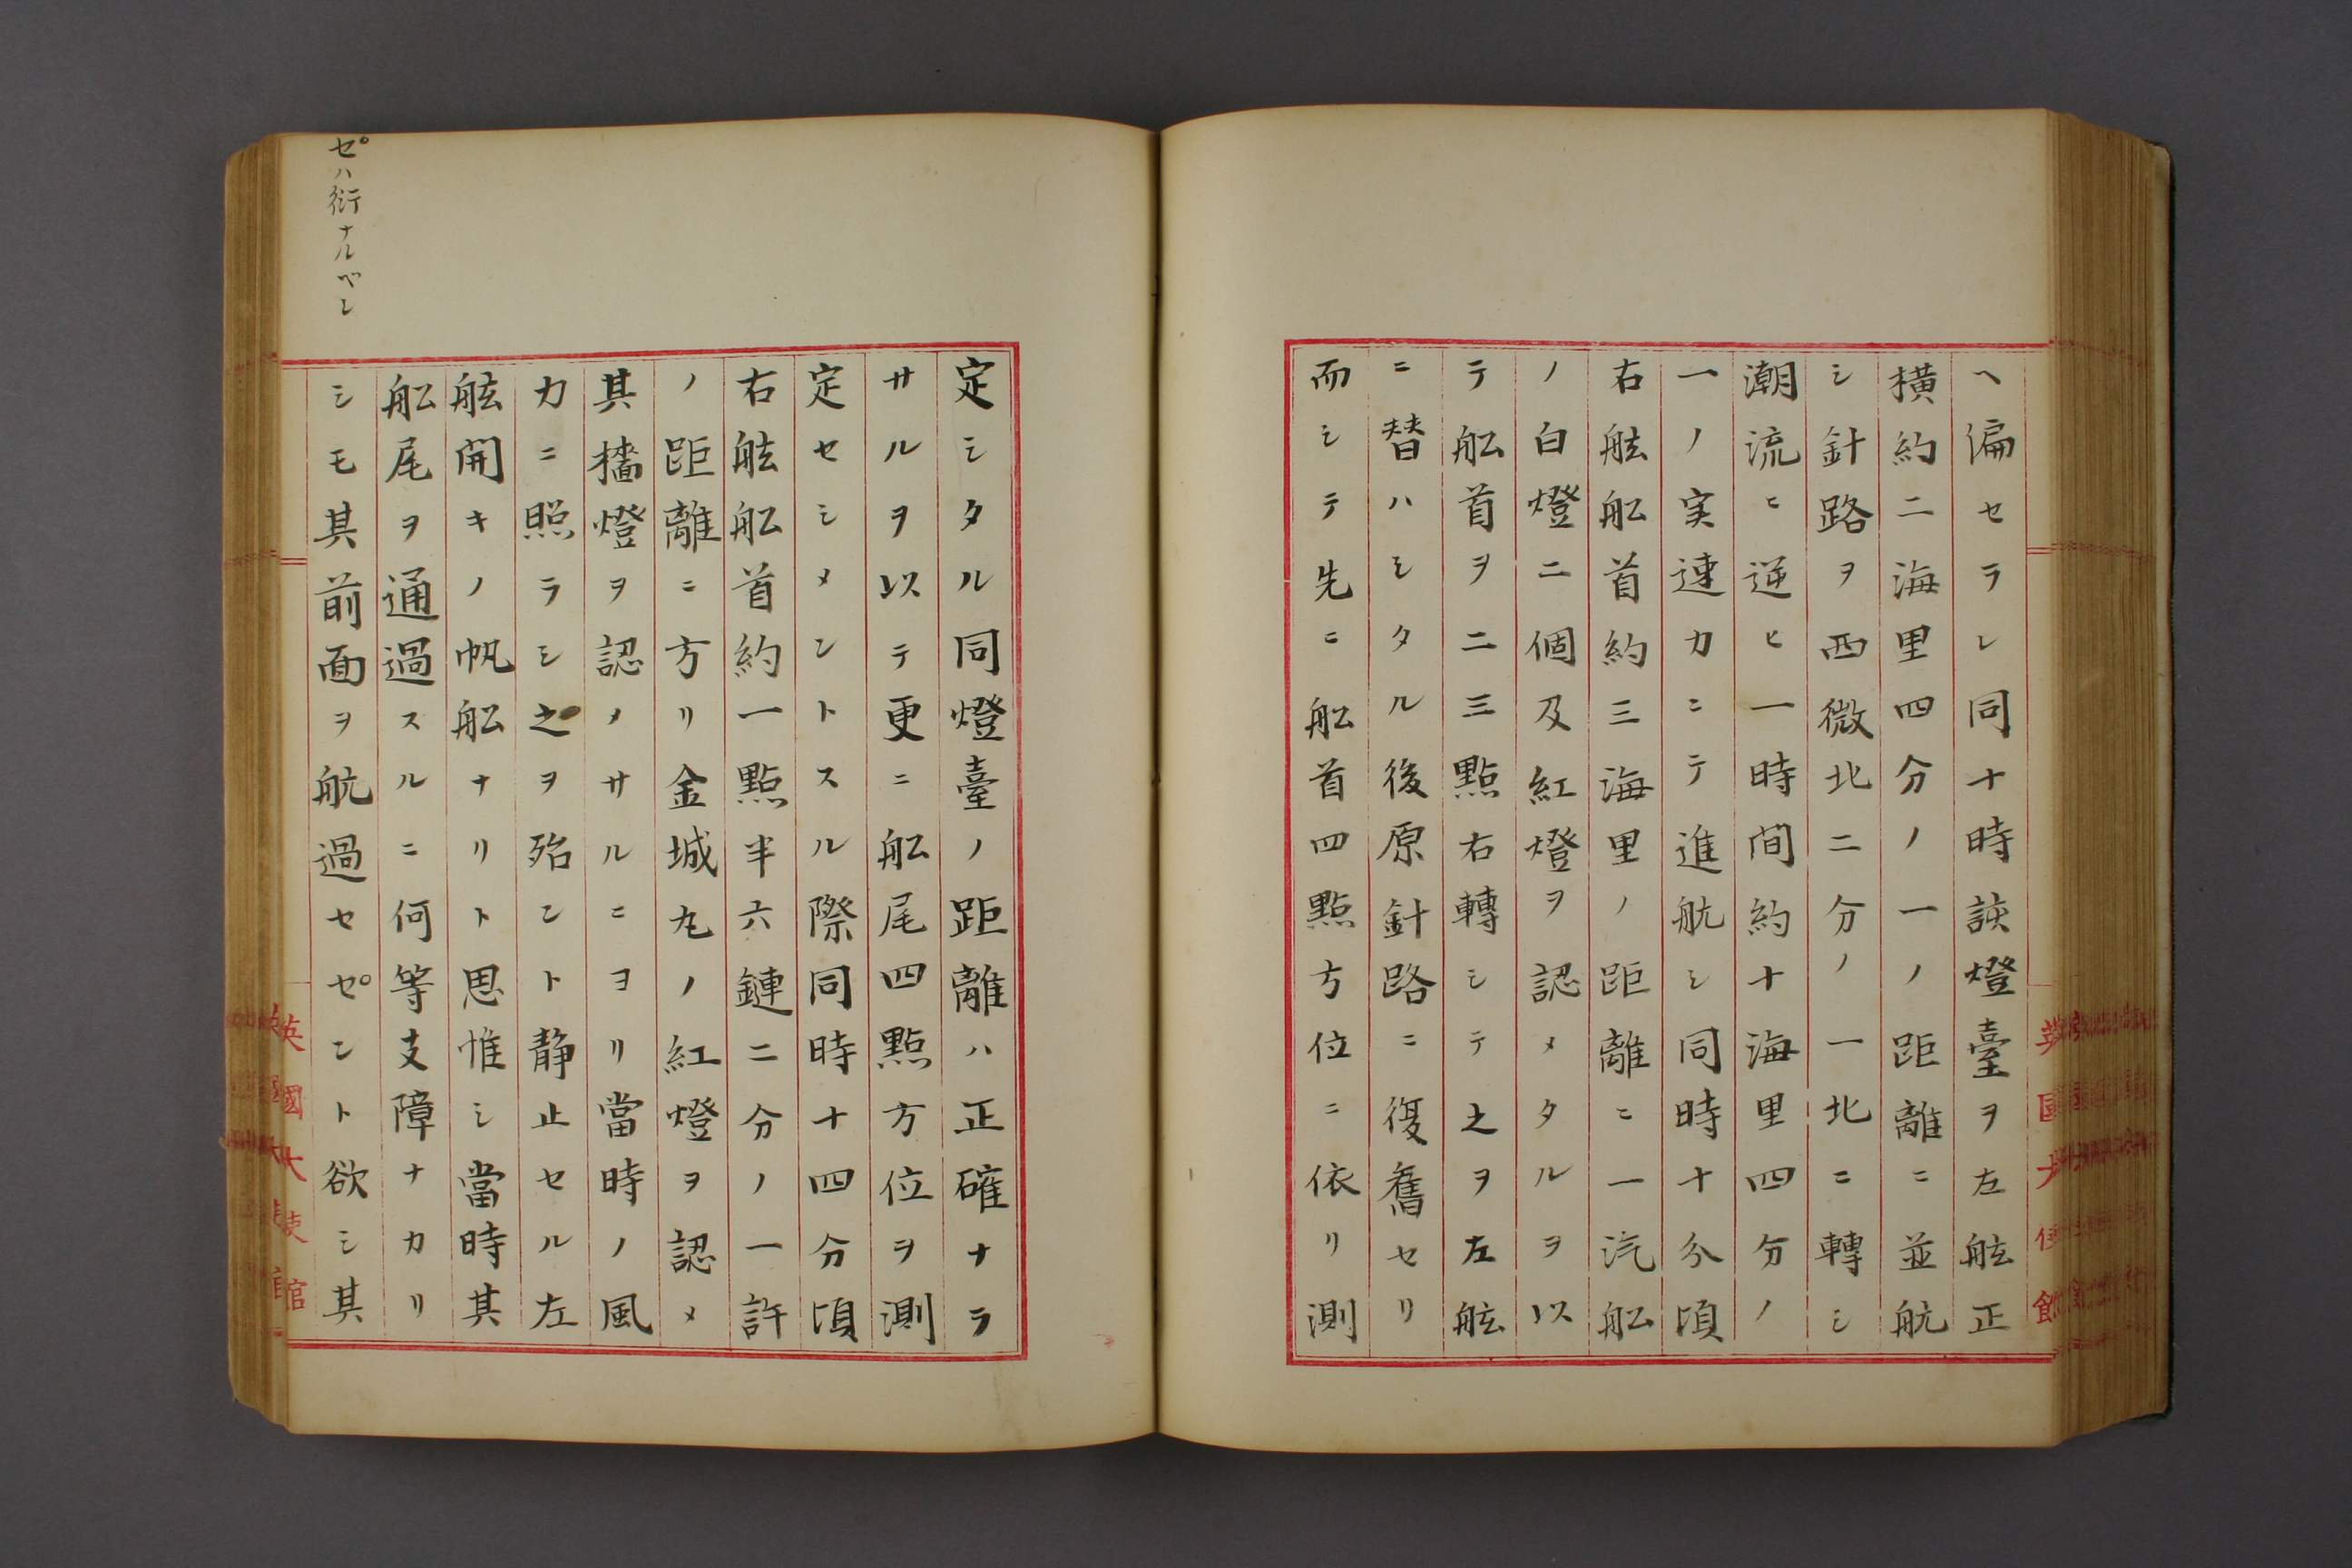 ヘ偏セラレ同十時該燈臺ヲ左舷正
横約二海里四分ノ一ノ距離ニ並航
シ針路ヲ西微北二分ノ一北ニ轉シ
潮流ニ逆ヒ一時間約十海里四分ノ
一ノ実速力ニテ進航シ同時十分頃
右舷船首約三海里ノ距離ニ一汽船
ノ白燈二個及紅燈ヲ認メタルヲ以
テ船首ヲ二三點右轉シテ之ヲ左舷
ニ替ハシタル後原針路ニ復舊セリ
而シテ先ニ船首四點方位ニ依リ測
定シタル同燈臺ノ距離ハ正確ナラ
サルヲ以テ更ニ船尾四點方位ヲ測
定セシメントスル際同時十四分頃
右舷船首約一點半六鏈二分ノ一許
ノ距離ニ方リ金城丸ノ紅燈ヲ認メ
其檣燈ヲ認メサルニヨリ當時ノ風
力ニ照ラシ之ヲ殆ント静止セル左
舷開キノ帆船ナリト思惟シ當時其
船尾ヲ通過スルニ何等支障ナカリ
シモ其前面ヲ航過セセ゜ント欲シ其
セ゜ハ衍ナルベシ
英國大使館
英國大使館